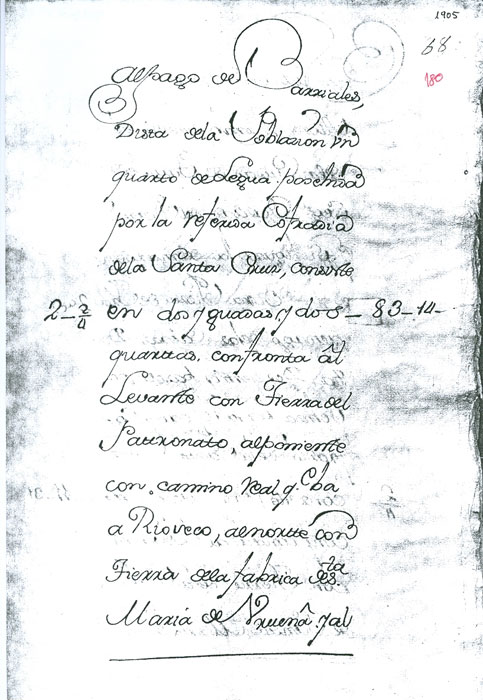 1905
68
180
Al pago de Barriales,
Dista dela Poblazion vn
quarto de Legua posehida
por la referida Cofradia
dela Santa Cruz, consiste
2-2/4 en dos yguadas, y dos - 83-14-
quartas. confronta al
Levante con Tierra del
Patronato, al poniente
con camino Real q.e ba
a Rioseco, al norte con
Tierra dela fabrica de S.ta
Maria de Vrueña. y al